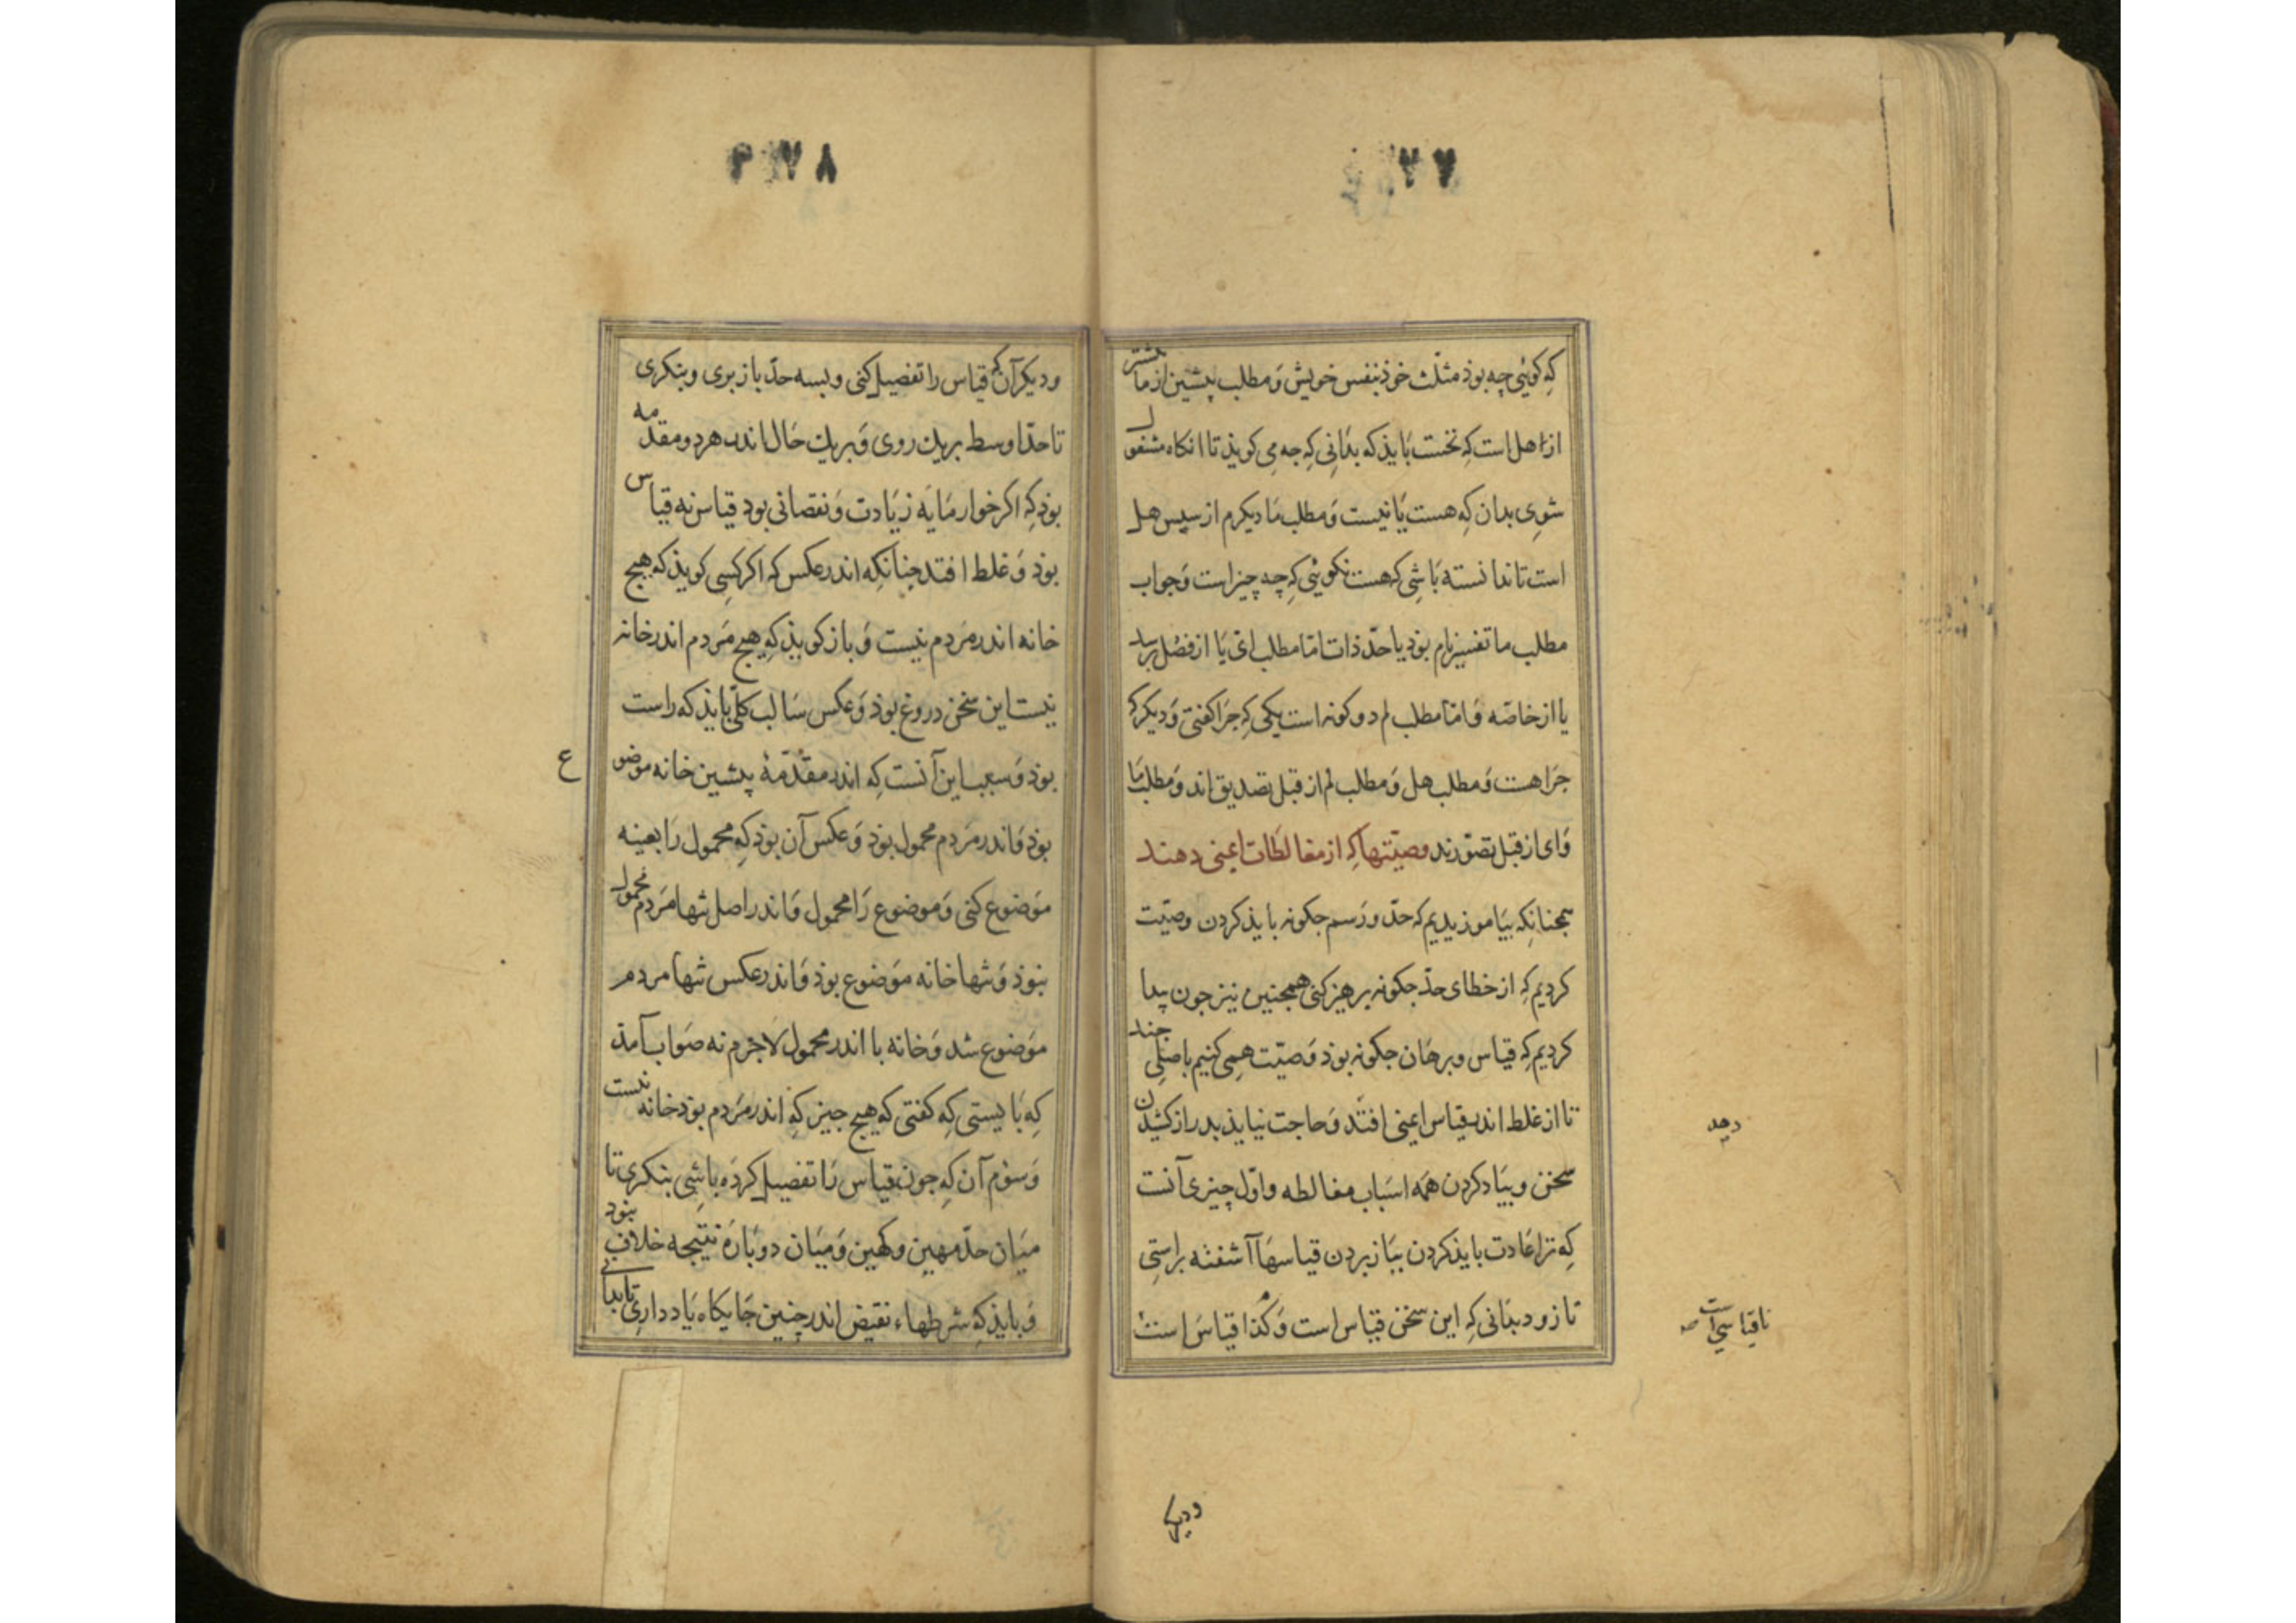 ۷۷
که کوئی چه بوذ مثلّث خوذ بنفس خویش وَ مطلب پیشین از ما بیشتر
از اهل است کِه نخست بَایذ که بدَانی کِه جه می کویذ تا انکاه مشغول
شوی بدان کِه هست یَا نیست وَ مطلب مَا دیکرم از سپس هل
است تا ندانسته بَاشی که هست نکوئی کِه چه چیز است وَ جواب
مطلب ما تفسیر نام بوذ یا حدّ ذات امّا مطلب ایّ یَا از فصْل پرسد
یا از خاصّه وَ امّا مطلب لم دو کونه است یکی کِه جرَا کفتی وَ دیکر که
جرَا هست وَ مطلب هل وَ مطلب لم از قبل تصدیق اند وَ مطلب مَا
وَ ای از قبل تصوّرند وصیّتها کِه از مغالطَات ایمنی دهند
همجنانکِه بیَاموزیدیم که حدّ و رَسم جکونه بایذ کردن وصیّت
کردیم کِه از خطای حدّ جکونه پرهیز کنی همجنین نیز جون پیدا
کردیم کِه قیاس و برهَان جکونه بوذ وَصیّت همی کنیم باصلی جند
تا از غلط اندر قیاس ایمنی افتد وَ حاجت نیایذ بدراز کشیدن
سخن و بیَاد کردن همَه اسبَاب مغالطه و اوّل چیزی آنست
کِه ترا عَادت بایذ کردن بیَاز بردن قیاسهَا آشفته براستِی
تا زود بدَانی کِه این سخن قیاس است وَ کُذا قیاسَ است
دهد
نا قیاسی است صه
و دیکر
۷۸
و دیکر آن که قیاس را تفصیل کنی و بسه حدّ باز بری و بنکری
تا حدّ اوسط بریک روی وَ بریک حَال اندر هر دو مقدّمه
بوذ کِه اکر خوار مَایَه زیَادت وَ نقصانی بود قیاس نه قیاس
بوذ وَ غلط افتد جنانکِه اندر عکس که اکر کسِی کویذ که هیج
خانه اندر مَردم نیست وَ باز کویذ کِه هیج مَردم اندر خانه
نیست این سخن دروغ بوذ وَ عکس سَالب کلّی بایذ که راست
بوذ وَ سبب این آنست کِه اندر مقدّمهٔ پیشین خانه موضوع
بوذ وَ اندر مَردم محمول بوذ وَ عکس آن بوذ کِه محمول رَا بعینه
موَضوع کنی وَ موضوع رَا محمول وَ اندر اصل تنها مَردم محمول
نبوذ وَ تنها خانه موَضوع بوذ وَ اندر عکس تنها مردم
موَضوع شد وَ خانه با اندر محمول لَاجَرم نه صوَاب آمذ
کِه بَایستی کِه کفتی که هیج جیز کِه اندر مَردم بوَذ خانه نیست
وَ سوُم آن کِه جون قیاس رَا تفضیل کردَه باشِی بنکری تا
میَان حدّ مهین و کهین وَ میَان دو پَارهَ نتیجه خلاف نبوَد
وَ بایذ کِه شرطهاء نقیض اندر چنین جَایکاه یَاد داری تا بدانی